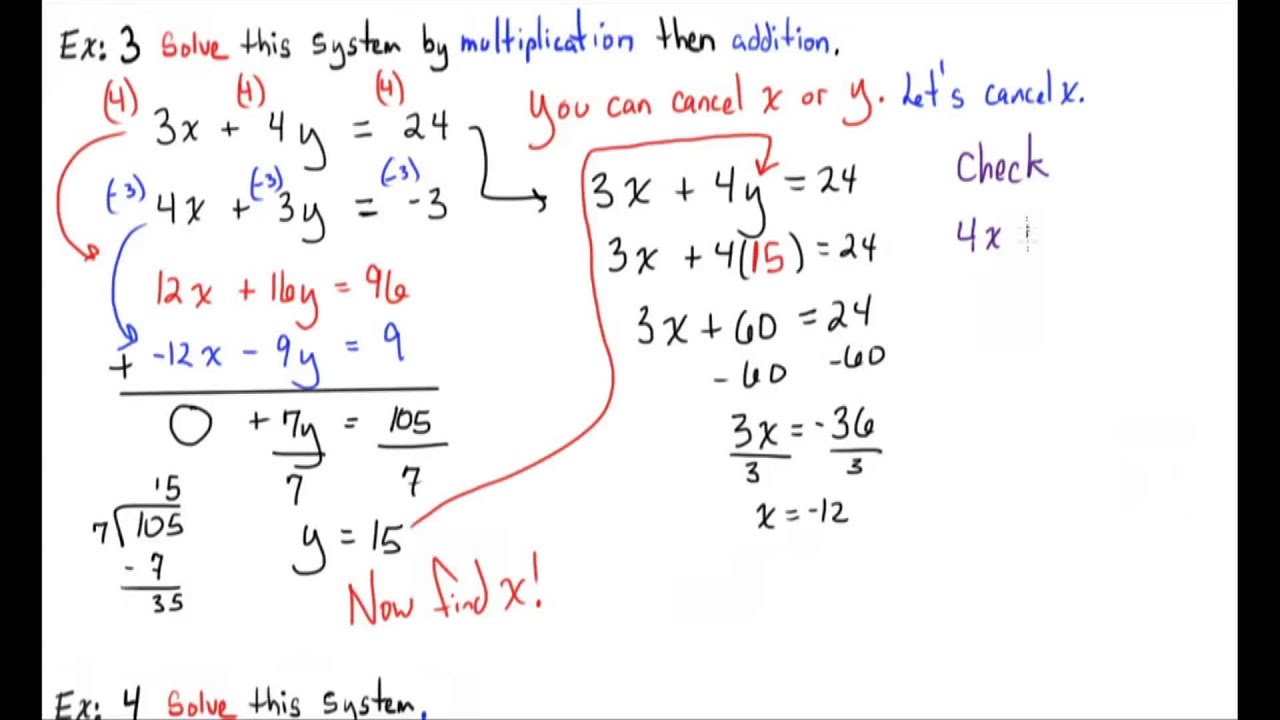 Ex: 3 Solve this system by multiplication then addition.
(4) (4) (4)
3x + 4y = 24
(-3) (-3) (-3)
4x + 3y = -3
12x + 16y = 96
+ -12x - 9y = 9
0 + 7y = 105
7 7
y = 15
15
7 105
- 7
35
Now find x!
You can cancel x or y. Let's cancel x.
3x + 4y = 24
3x + 4(15) = 24
3x + 60 = 24
- 60 -60
3x = -36
3 3
x = -12
Check
4x
Ex: 4 Solve this system.